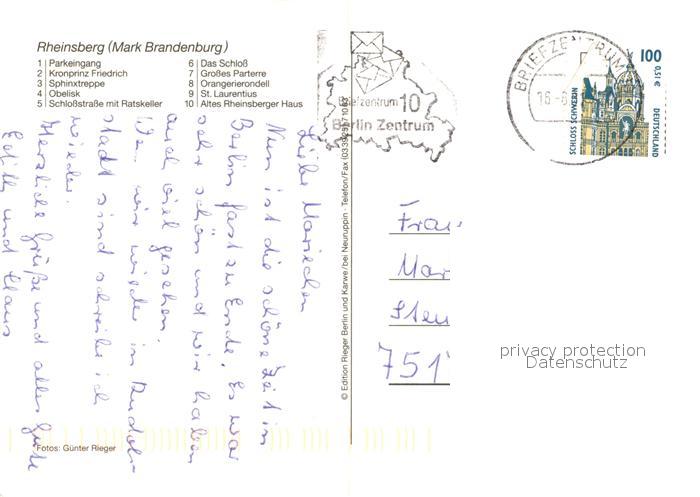 Rheinsberg (Mark Brandenburg)
1 Parkeingang
2 Kronprinz Friedrich
3 Sphinxtreppe
4 Obelisk
5 Schloßstraße mit Ratskeller
6 Das Schloß
7 Großes Parterre
8 Orangerierondell
9 St. Laurentius
10 Altes Rheinsberger Haus
Liebe Mariechen
Nun ist die schöne Zeit in
Berlin fast zu Ende. Es war
sehr schön und wir haben
auch viel gesehen.
Wenn wir wieder in Rudol-
stadt sind schreibe ich
wieder.
Herzliche Grüße und alles Gute
Edith und Klaus
Fotos: Günter Rieger
© Edition Rieger Berlin und Karwe/bei Neuruppin · Telefon/Fax
Briefzentrum 10
Berlin Zentrum
BRIEFZENTRUM
16.-8
100
0,51 €
SCHLOSS SCHWERIN
DEUTSCHLAND
Frau
Mar
Steu
751
privacy protection
Datenschutz